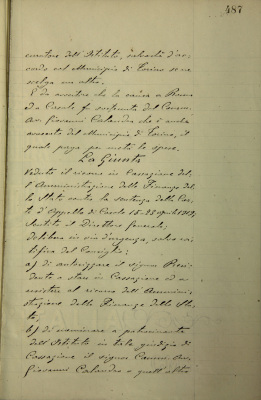 487
curatore dell'Istituto, d'accordo
col Municipio di Torino se ne
scelga un altro.
È da avvertire che la causa a Roma
ed a Casale fu sostenuta dal Comm.
Avv. Giovanni Calandra che è anche
avvocato del Municipio di Torino, il
quale paga per metà le spese.
La Giunta
Veduto il ricorso in Cassazione del-
l'Amministrazione delle Finanze del-
lo Stato contro la sentenza della Cor-
te d'Appello di Casale 15-25 aprile
Sentito il Direttore generale,
delibera in via d'urgenza, salvo ra-
tifica del Consiglio:
a) di autorizzare il signor Presi-
dente a stare in Cassazione ed a
resistere al ricorso dell'Ammini-
strazione delle Finanze dello Sta-
to;
b) di nominare a patrocinante
dell'Istituto in tale giudizio di
Cassazione il signor Comm. Avv.
Giovanni Calandra o quell'altro